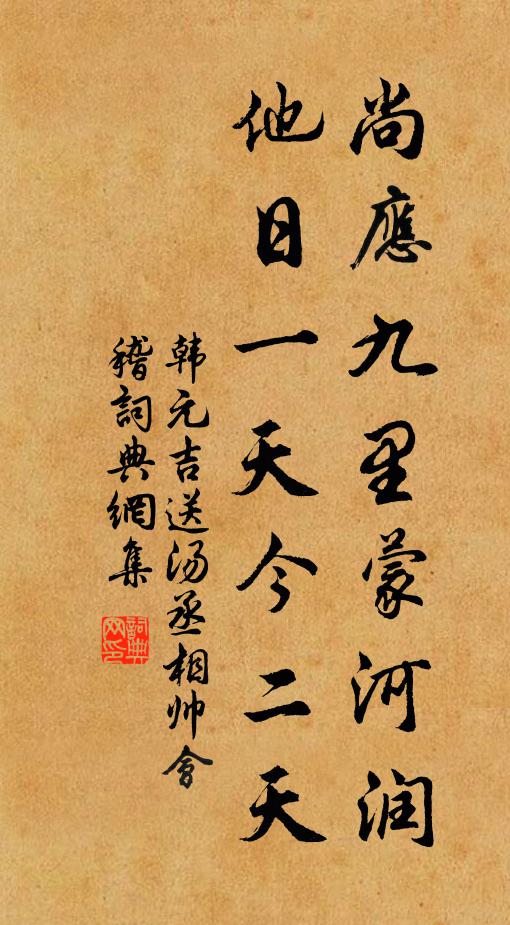 尚應九里蒙河润
他日一天今二天
韩元吉送汤丞相帅會
稽詞典網集
詞典
网印